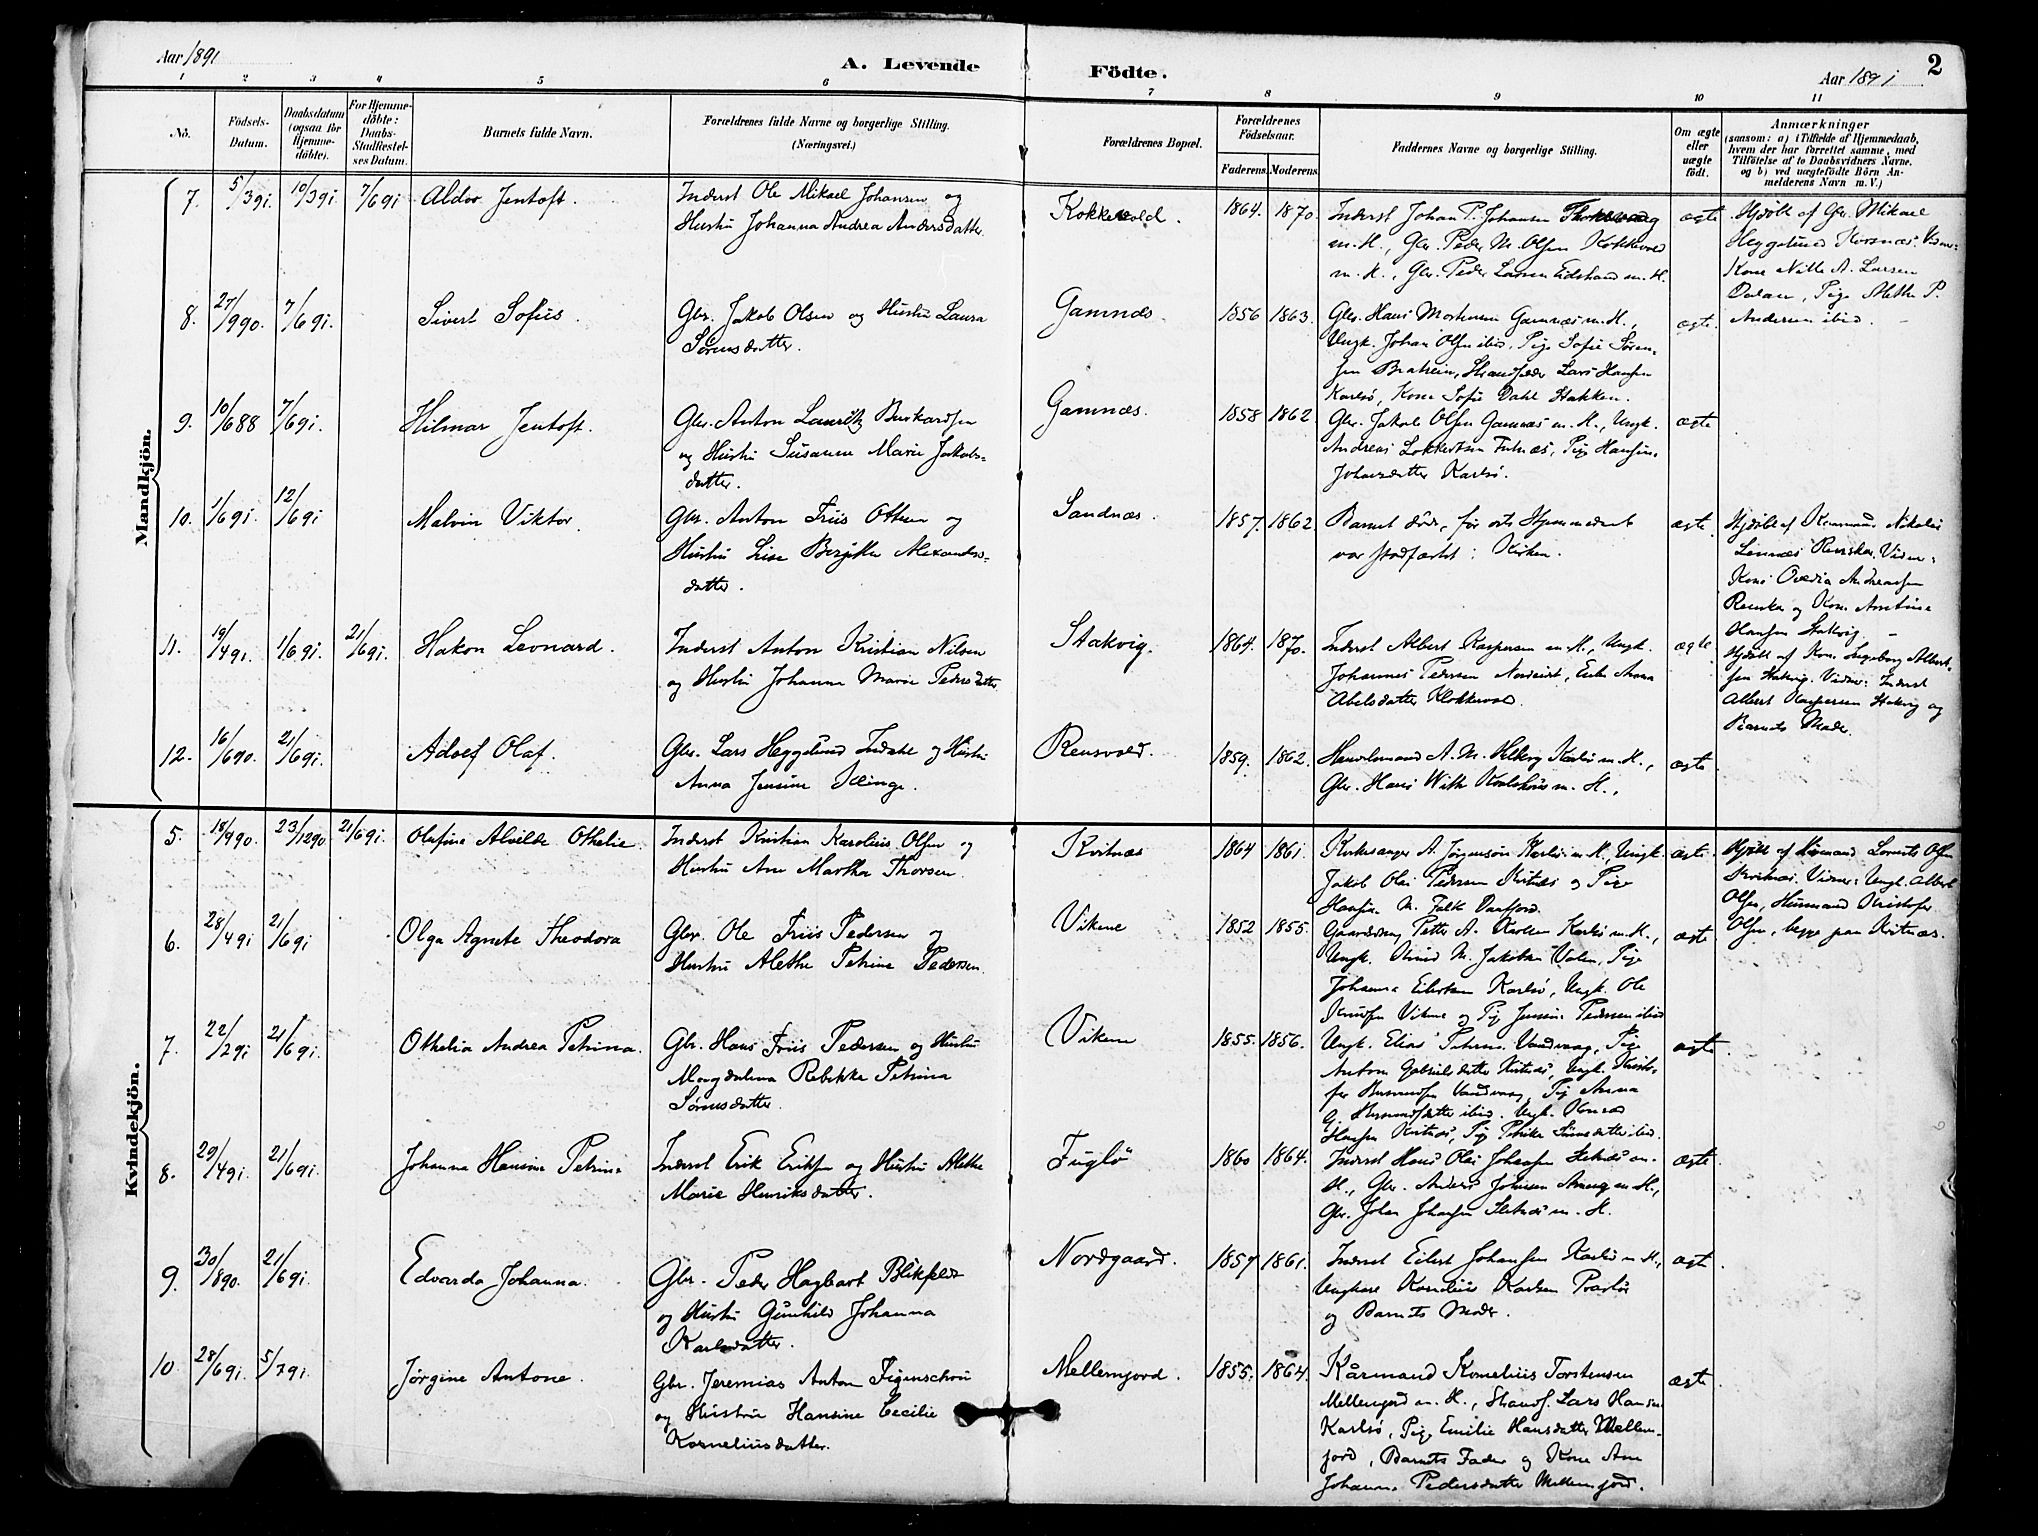 Aar 1891
A. Levende Födte.
Aar 1891
2
1 2 3 4 5 6 7 8 9 10 11
No.
Födsels-Datum.
Daabsdatum (ogsaa for Hjemme-döbte).
For Hjemme-döbte: Daabs-Stadfæstel-ses Datum.
Barnets fulde Navn.
Forældrenes fulde Navne og borgerlige Stilling.
(Næringsvei.)
Forældrenes Bopæl.
Forældrenes Födselsaar.
Faderens. Moderens.
Faddernes Navne og borgerlige Stilling.
Om ægte eller uægte födt.
Anmærkninger
(saasom: a) i Tilfælde af Hjemmedaab, hvem der har forrettet samme, med Tilföielse af to Daabsvidners Navne. og b) ved uægtefödte Börn An-melderens Navn m. V.)
Mandkjön.
7. 5/3 91. 10/3 91. 7/6 91. Aldor Jentoft.
Inderst Ole Mikael Johansen og
Hustru Johanna Andrea Andersdatter.
Kokkevold. 1864. 1870.
Inderst Johan P. Johansen
m. H., Gbr. Peder M. Olsen Kokkevold
m. H., Gbr. Peder Larsen Eidstrand m. H.
ægte
Hjdöbt af Gbr. Mikael
Heggelund Korsnæs. Vidner:
Kone A. Larsen
Dalan, Pige Alethe P.
Andersen ibid.
8. 27/9 90. 7/6 91. Sivert Sofus.
Gbr. Jakob Olsen og Hustru Laura
Sørensdatter.
Gamnæs. 1856 1863.
Gbr. Hans Mortensen Gamnæs m. H.,
Ungk. Johan Olsen ibid, Pige Sofie Søren-
sen Bratrein, Lars Hansen
Karlsø, Kone Sofie Dahl Stakken.
ægte.
9. 10/6 88 7/6 91. Hilmar Jentoft.
Gbr. Anton Lauritz Burkardsen
og Hustru Susanne Marie Jakobs-
datter.
Gamnæs. 1858 1862
Gbr. Jakob Olsen Gamnæs m. H., Ungk.
Andreas Lokkertsen, Pige Hansine
Johansdatter Karlsø.
ægte
10. 1/6 91. 12/6 91 Malvin Viktor.
Gbr. Anton Friis Ottesen og
Hustru Lise Bergitte Alexanders-
datter.
Sandnæs. 1857. 1862
Barnet døde, før dets Hjemmedaab
var stadfæstet i Kirken.
ægte.
Hjdöbt af Nikolai
Vidner:
Kone Andreassen
og Kone Anne
Hansen Stakvig.
11. 19/4 91. 1/6 91. 21/6 91. Hakon Leonard.
Inderst Anton Kristian Nilsen
og Hustru Johanna Marie Pedersdatter
Stakvig. 1864. 1870.
Inderst Albert Kaspersen m. H., Ungk.
Johannes Pedersen, Anna
Abelsdatter Klokkevold.
ægte
Hjdöbt af Kone Ingeborg Albert-
sen Stakvig. Vidner: Inderst
Albert Kaspersen Stakvig og
Barnets Moder.
12. 16/6 90. 21/6 91. Adolf Olaf.
Gbr. Lars Heggelund Indahl og Hustru
Anna Jensine Klinge.
Rensvold. 1859. 1862.
Handelsmand A. M. Helberg Karlsø m. H.,
Gbr. Hans m. H.,
ægte
Kvindekjön.
5. 18/9 90. 23/12 90 21/6 91. Olufine Alvilde Othelie.
Inderst Kristian Karolius Olsen og
Hustru Ane Martha Thorsen.
Kvitnæs 1864 1861.
Kirkesanger A. Jørgensen Karlsø m. H., Ungk.
Jakob Olai Pedersen Kvitnæs og Pige
Hansine M. Falk Daafjord.
ægte.
Hjdöbt af Husmand Lorents Olsen
Kvitnæs. Vidner: Ungk. Albert
Olsen, Husmand Kristofer
Olsen, begge paa Kvitnæs.
6. 28/4 91 21/6 91 Olga Agnete Theodora
Gbr. Ole Friis Pedersen og
Hustru Alethe Petrine Pedersen.
Vikene 1852 1855.
Petter A. Karlsø m. H.,
Ungk. M. Jakobsen, Pige
Johanna Eilertsen Karlsø, Ungk. Ole
Knudsen Vikene og Pige Jensine Pedersen ibid
ægte
7. 22/2 91 21/6 91. Othelia Andrea Petrina.
Gbr. Hans Friis Pedersen og Hustru
Magdalena Rebekka Petrina
Sørensdatter.
Vikene 1855. 1856.
Ungk. Elias Vandvaag, Pige
Anton Gabrielsdatter Kvitnæs, Ungk. Kristo-
fer Vandvaag, Pige Anna
ibid. Ungk. Konrad
Hansen Kvitnæs, Pige ibid.
ægte
8. 29/4 91. 21/6 91. Johanna Hansine Petrina
Inderst Erik Eriksen og Hustru Alethe
Marie Henriksdatter.
Fuglø 1860 1864.
Inderst Hans Olai Johansen m.
H., Gbr. Anders Johnsen m. H.,
Gbr. Johan Johansen m. H.
ægte.
9. 30/8 90. 21/6 91. Edvarda Johanna.
Gbr. Peder Hagbart Blikfeldt
og Hustru Gunhild Johanna
Karlsdatter.
Nordgaard. 1857 1861.
Inderst Eilert Johansen Karlsø m. H.,
Ungkarl Kornelius Karlsen
og Barnets Moder.
ægte
10. 28/6 91. 5/7 91. Jørgine Antone.
Gbr. Jeremias Anton Figenschou
og Hustru Hansine Cecilie
Korneliusdatter.
Mellemjord. 1855. 1864.
Kårmand Kornelius Torstensen
Mellemjord m. H., Lars Hansen
Karlsø, Pige Emilie Hansdatter Mellem-
jord, Barnets Fader og Kone Ane
Johanna Pedersdatter Mellemjord.
ægte